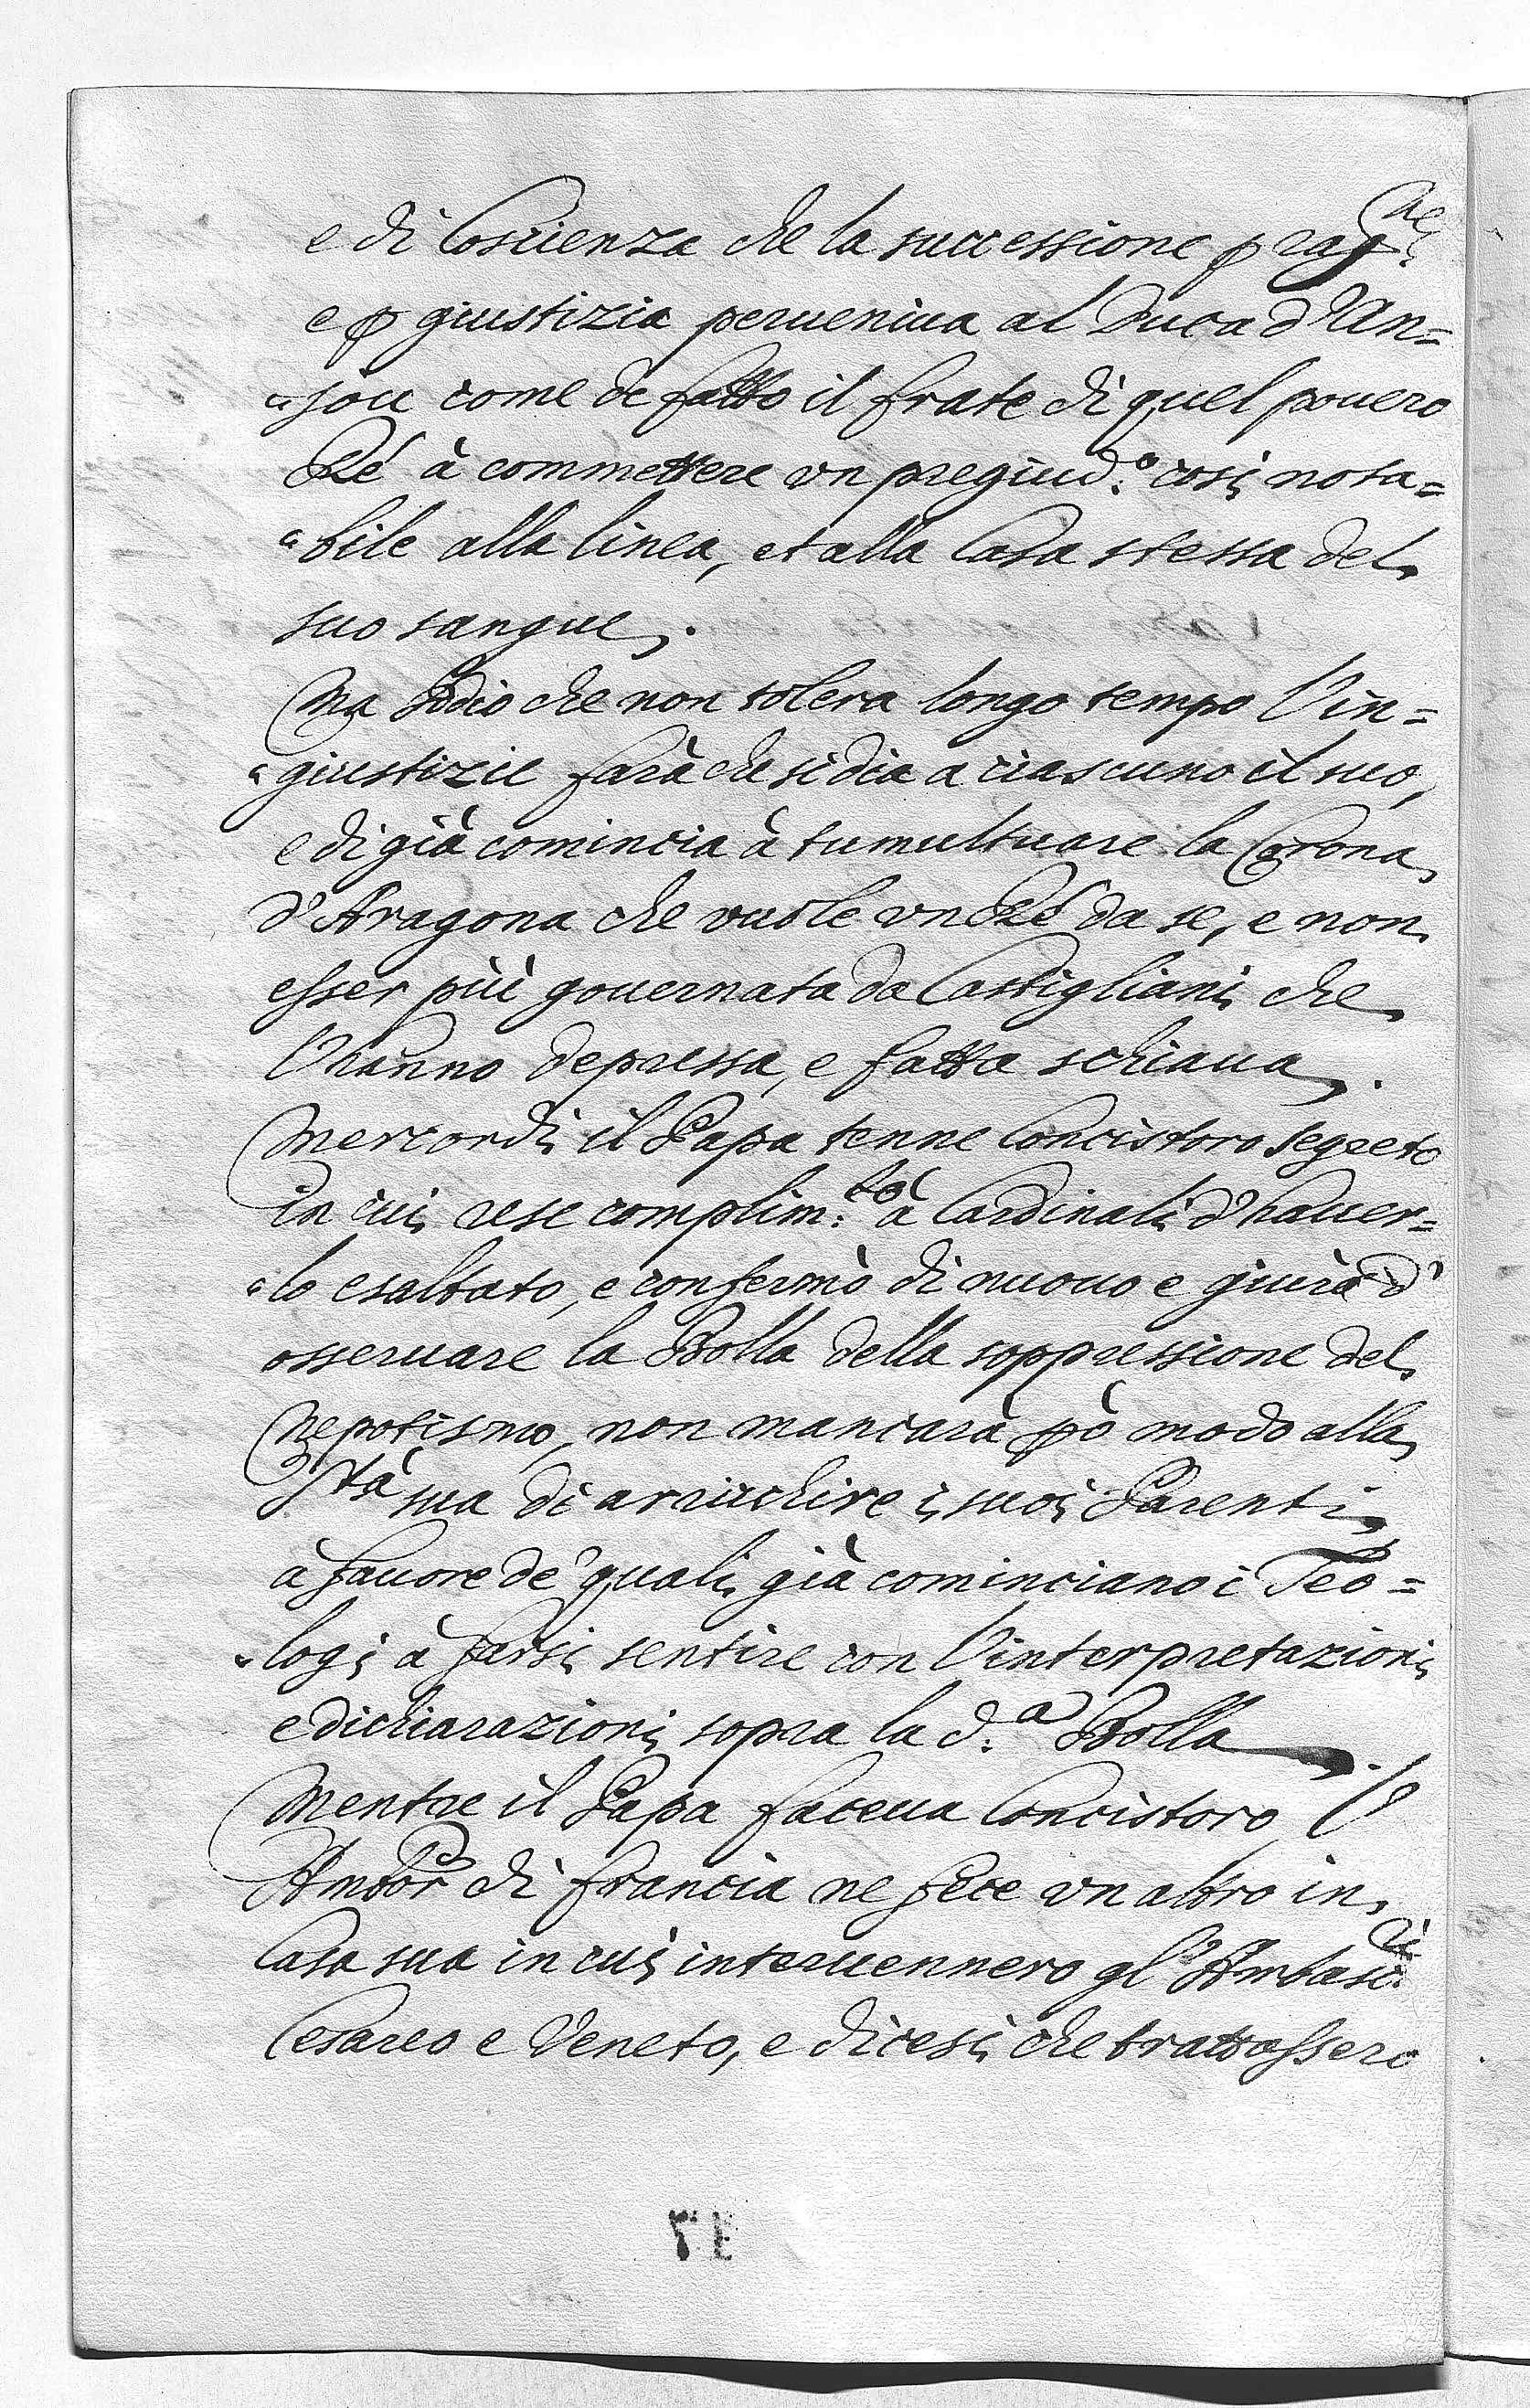 e di Coscienza che la successione ꝑ rag.ne
e ꝑ giustizia perueniua al Duca d'An=
jou come de fatto il frate di quel pouero
Ré à commettere vn pregiud.o così nota=
bile alla linea, et alla Casa stessa del
suo sangue.
Ma Iddio che non tolera longo tempo l'in=
giustizie farà che si dia a ciascuno il suo,
e di già comincia à tumultuare la Corona
d'Aragona che vuole vn Ré da se, e non
esser più gouernata da Castigliani che
l'hanno depressa, e fatta schiaua.
Mercordi il Papa tenne Concistoro segreto
in cui rese complim.to à Cardinali d'hauer=
lo esaltato, e confermò di nuouo e giurò d'
osseruare la Bolla della soppressione del
Nepotismo, non mancarà ꝑò modo alla
S.tà sua di arricchire i suoi Parenti
à fauore de' quali già cominciano i Teo=
logi à farsi sentire con l'interpretazioni
e dichiarazioni sopra la d.a Bolla.
Mentre il Papa faceua Concistoro, l'
Ambor di francia ne fece vn altro in
Casa sua in cui interuennero gl'Ambasc.ri
Cesareo e Veneto, e dicesi che trattassero